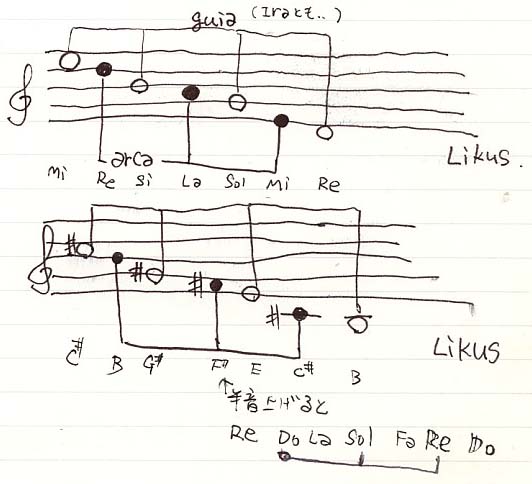 guia (Iraとも..)
arca
Mi Re Si La Sol Mi Re
Likus.
C# B G# F# E C# B
Likus
↑半音上げると
Re Do La Sol Fa Re Do